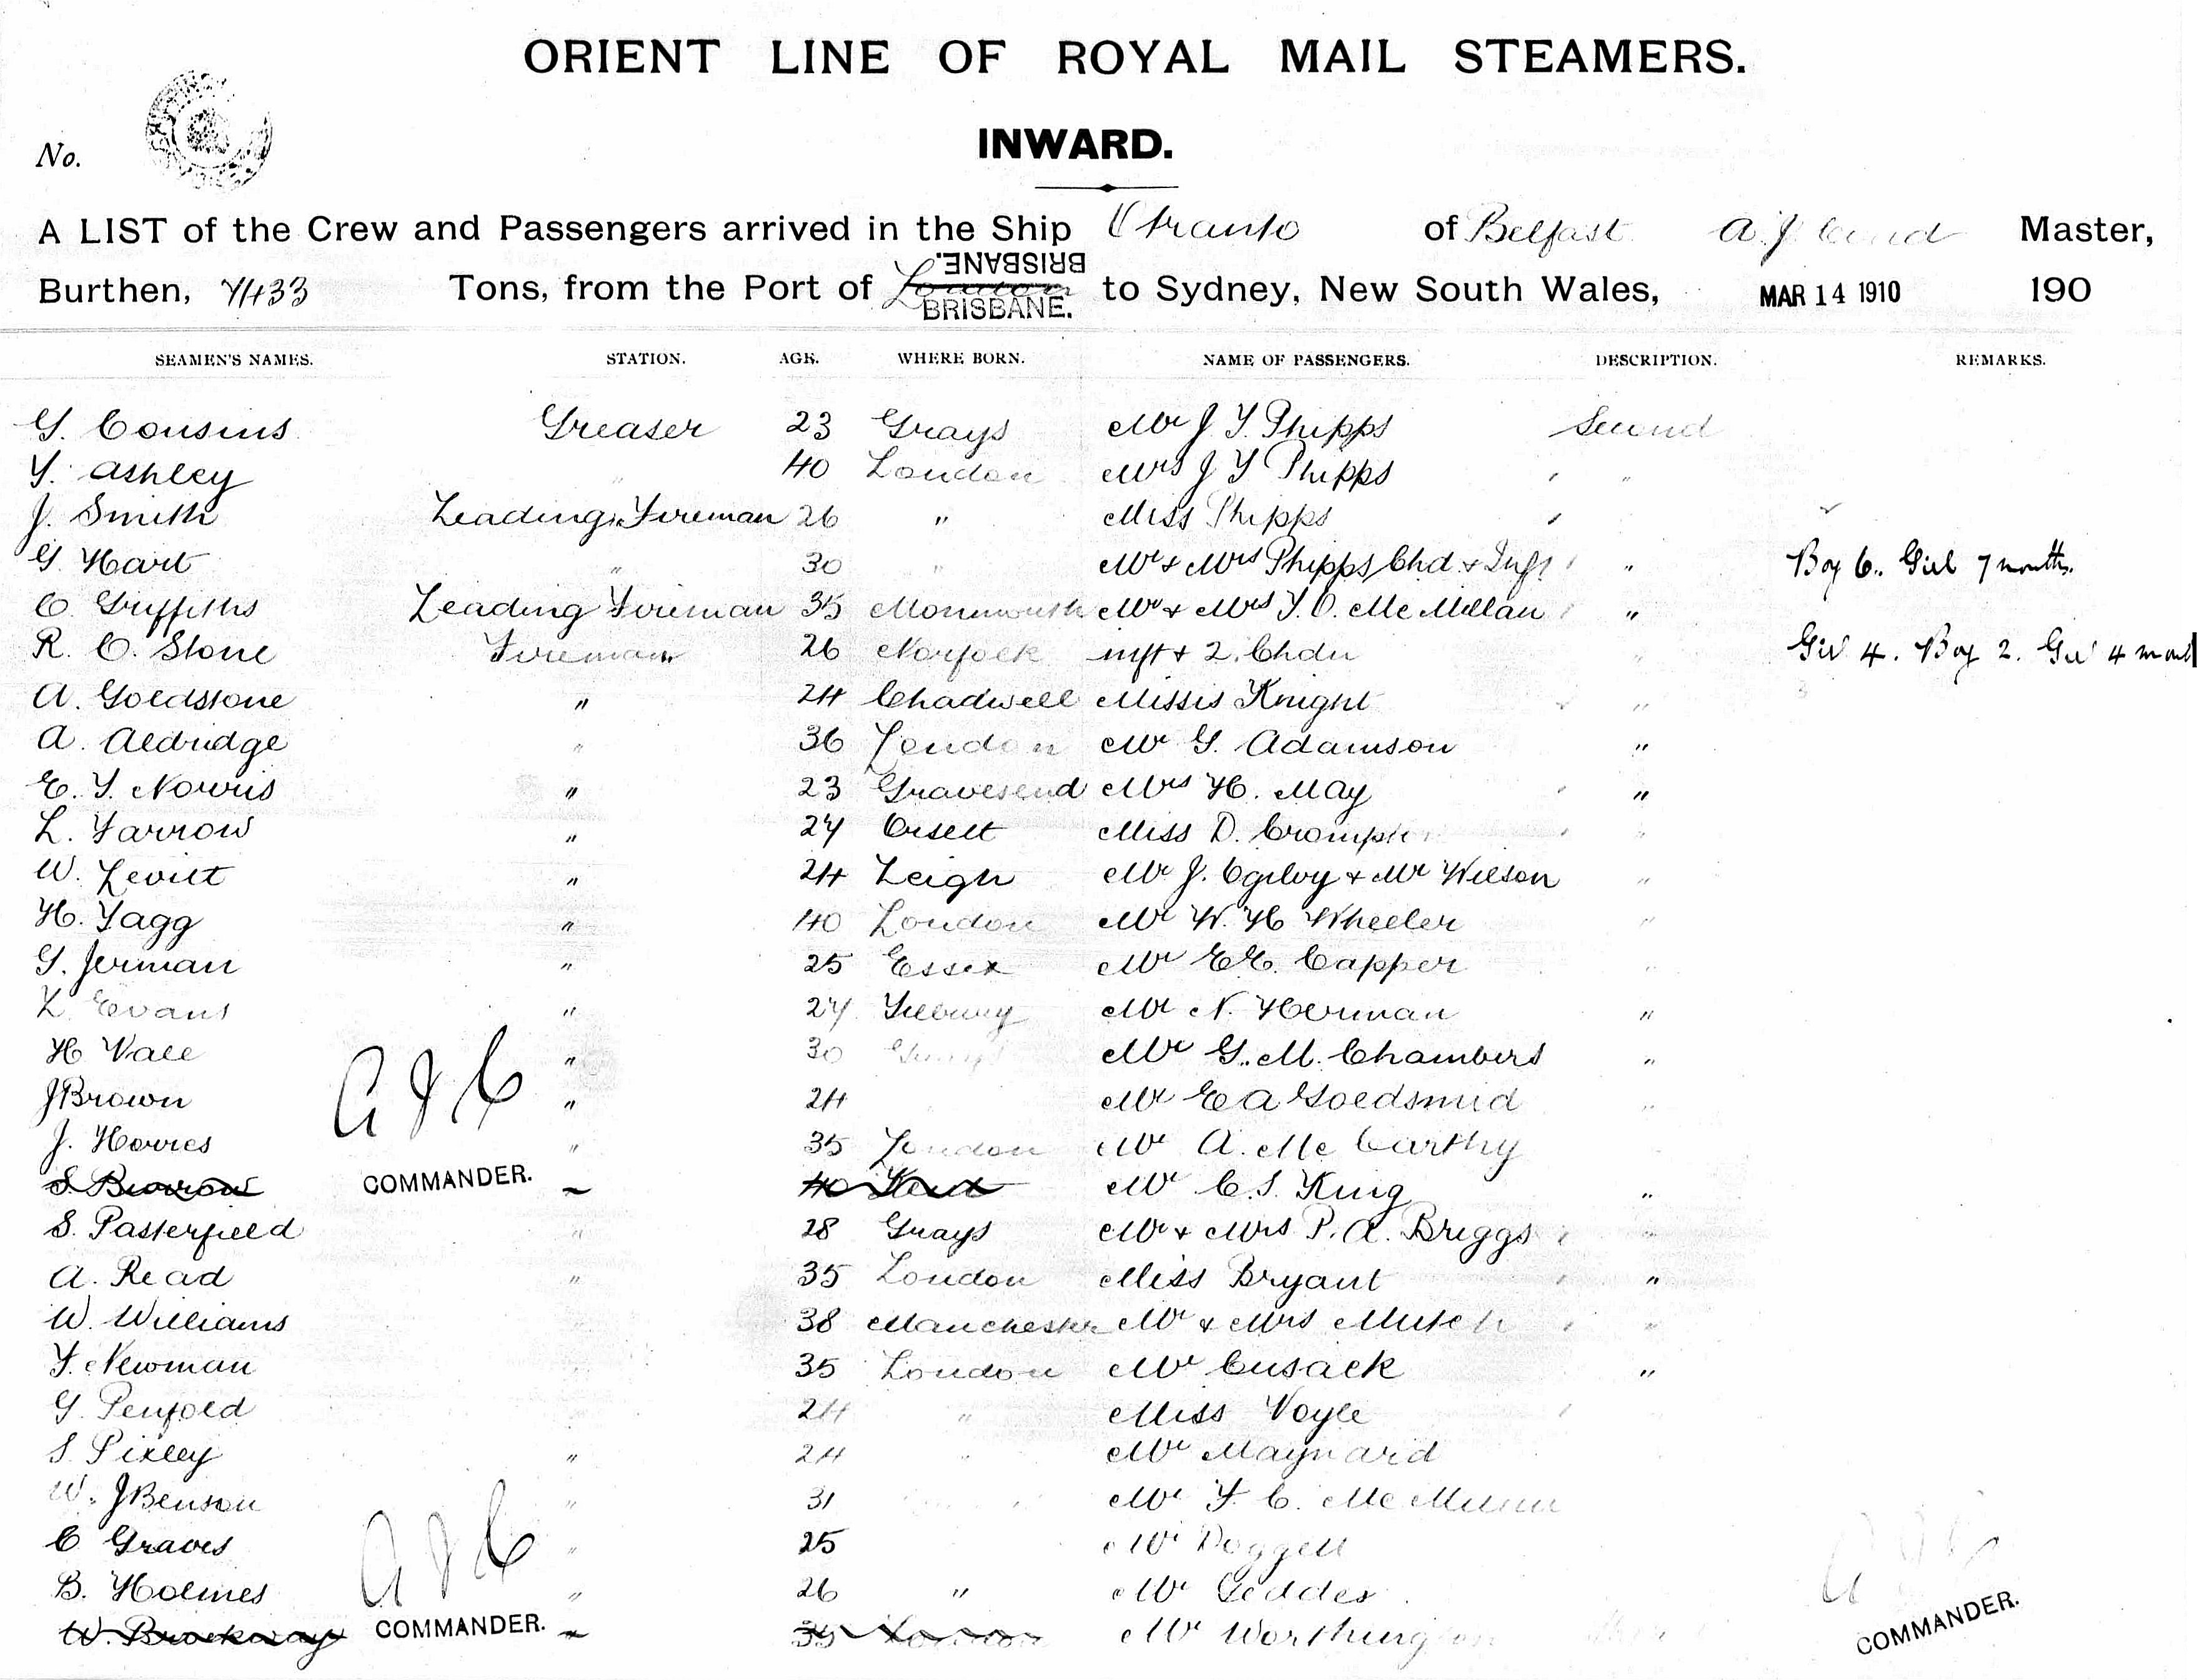 ORIENT LINE OF ROYAL MAIL STEAMERS.
INWARD.
No.
A LIST of the Crew and Passengers arrived in the Ship Otranto of Belfast A. J. Master,
BRISBANE.
Burthen, 7433 Tons, from the Port of London to Sydney, New South Wales, MAR 14 1910 190
BRISBANE.
SEAMEN'S NAMES. STATION. AGE. WHERE BORN. NAME OF PASSENGERS. DESCRIPTION. REMARKS.
G. Cousins Greaser 23 Grays Mr J F. Phipps Second
F. Ashley " 40 London Mrs J F Phipps " "
J. Smith Leading Fireman 26 " Miss Phipps "
G. Hart " 30 " Mr & Mrs Phipps Chd & Inft " Boy 6. Girl 7 months.
C. Griffiths Leading Fireman 35 Monmouth Mr & Mrs F. O. McMillan "
R. C. Stone Fireman 26 Norfolk inft & 2. Chdn " Girl 4. Boy 2. Girl 4 mont
A. Goldstone " 24 Chadwell Missis Knight "
A. Aldridge " 36 London Mr G. Adamson "
E. F. Norris " 23 Gravesend Mrs H. May "
L. Farrow " 27 Orsett Miss D. Crompton "
W. Levitt " 24 Leigh Mr J. Ogilvy & Mr Wilson "
H. Tagg " 40 London Mr W. H Wheeler "
G. Jerman " 25 Essex Mr E.E. Capper "
L Evans " 27 Tilbury Mr N. Herman "
H Vale " 30 Grays Mr G. M. Chambers "
A J C
J Brown " 24 Mr E A Goldsmid "
J. Horres " 35 London Mr A. McCarthy
S. Burrow COMMANDER. " 40 Kent Mr C. S. King "
S. Pasterfield " 28 Grays Mr & Mrs P. A. Briggs "
A. Read " 35 London Miss Bryant "
W. Williams 38 Manchester Mr & Mrs Mutch "
F. Newman 35 London Mr Cusack "
G. Penfold 24 " Miss Voyle
S. Pixley " 24 " Mr Maynard
W. J Benson " 31 Mr F. C.
C Graves " 25 Mr Doggett
A J C
B. Holmes " 26 " Mr Geddes
W. Brockway COMMANDER. " 35 London Mr Worthington
COMMANDER.